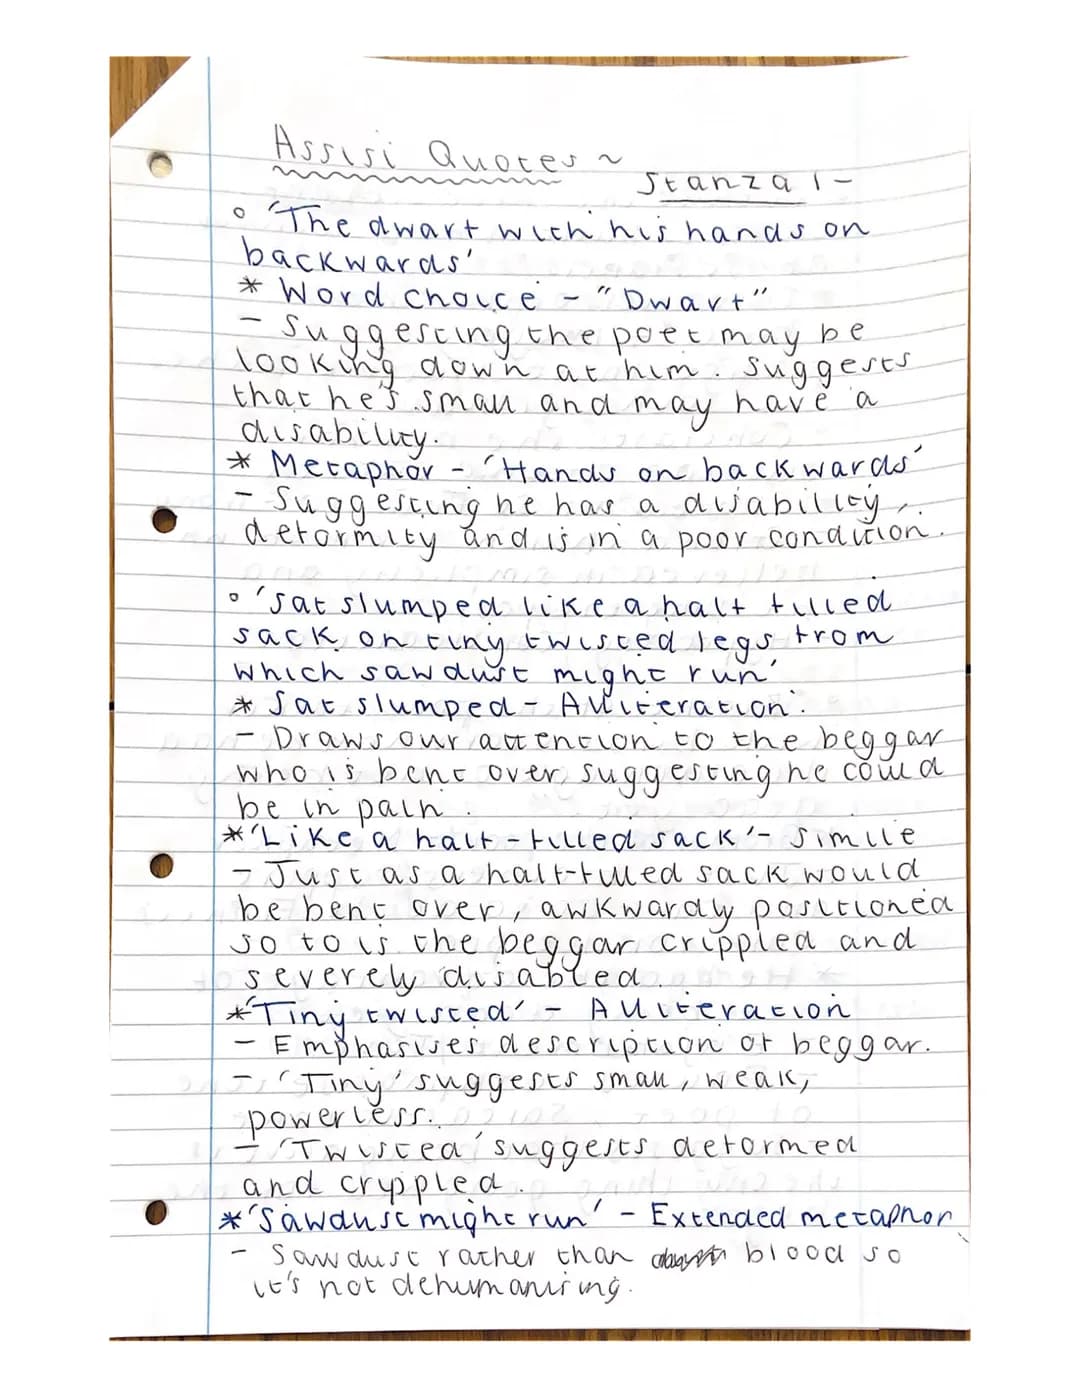 Assisi Quotes ~
Stanza 1 -
° 'The dwarf with his hands on
backwards'
* Word choice - "Dwarf"
- Suggesting the poet may be
looking down at him. Suggests
that he's small and may have a
disability.
* Metaphor - 'Hands on backwards'
- Suggesting he has a disability,
deformity and is in a poor condition.
° 'sat slumped like a half filled
sack on tiny twisted legs from
which sawdust might run'
* Sat slumped - Alliteration.
- Draws our attention to the beggar
who is bent over, suggesting he could
be in pain.
* 'Like a half-filled sack' - simile
- Just as a half-filled sack would
be bent over, awkwardly positioned
so to is the beggar crippled and
severely disabled.
* 'Tiny twisted' - Alliteration
- Emphasises description of beggar.
- 'Tiny' suggests small, weak,
powerless.
- 'Twisted' suggests deformed
and crippled.
* 'Sawdust might run' - Extended metaphor
- Sawdust rather than blood so
it's not dehumanising.